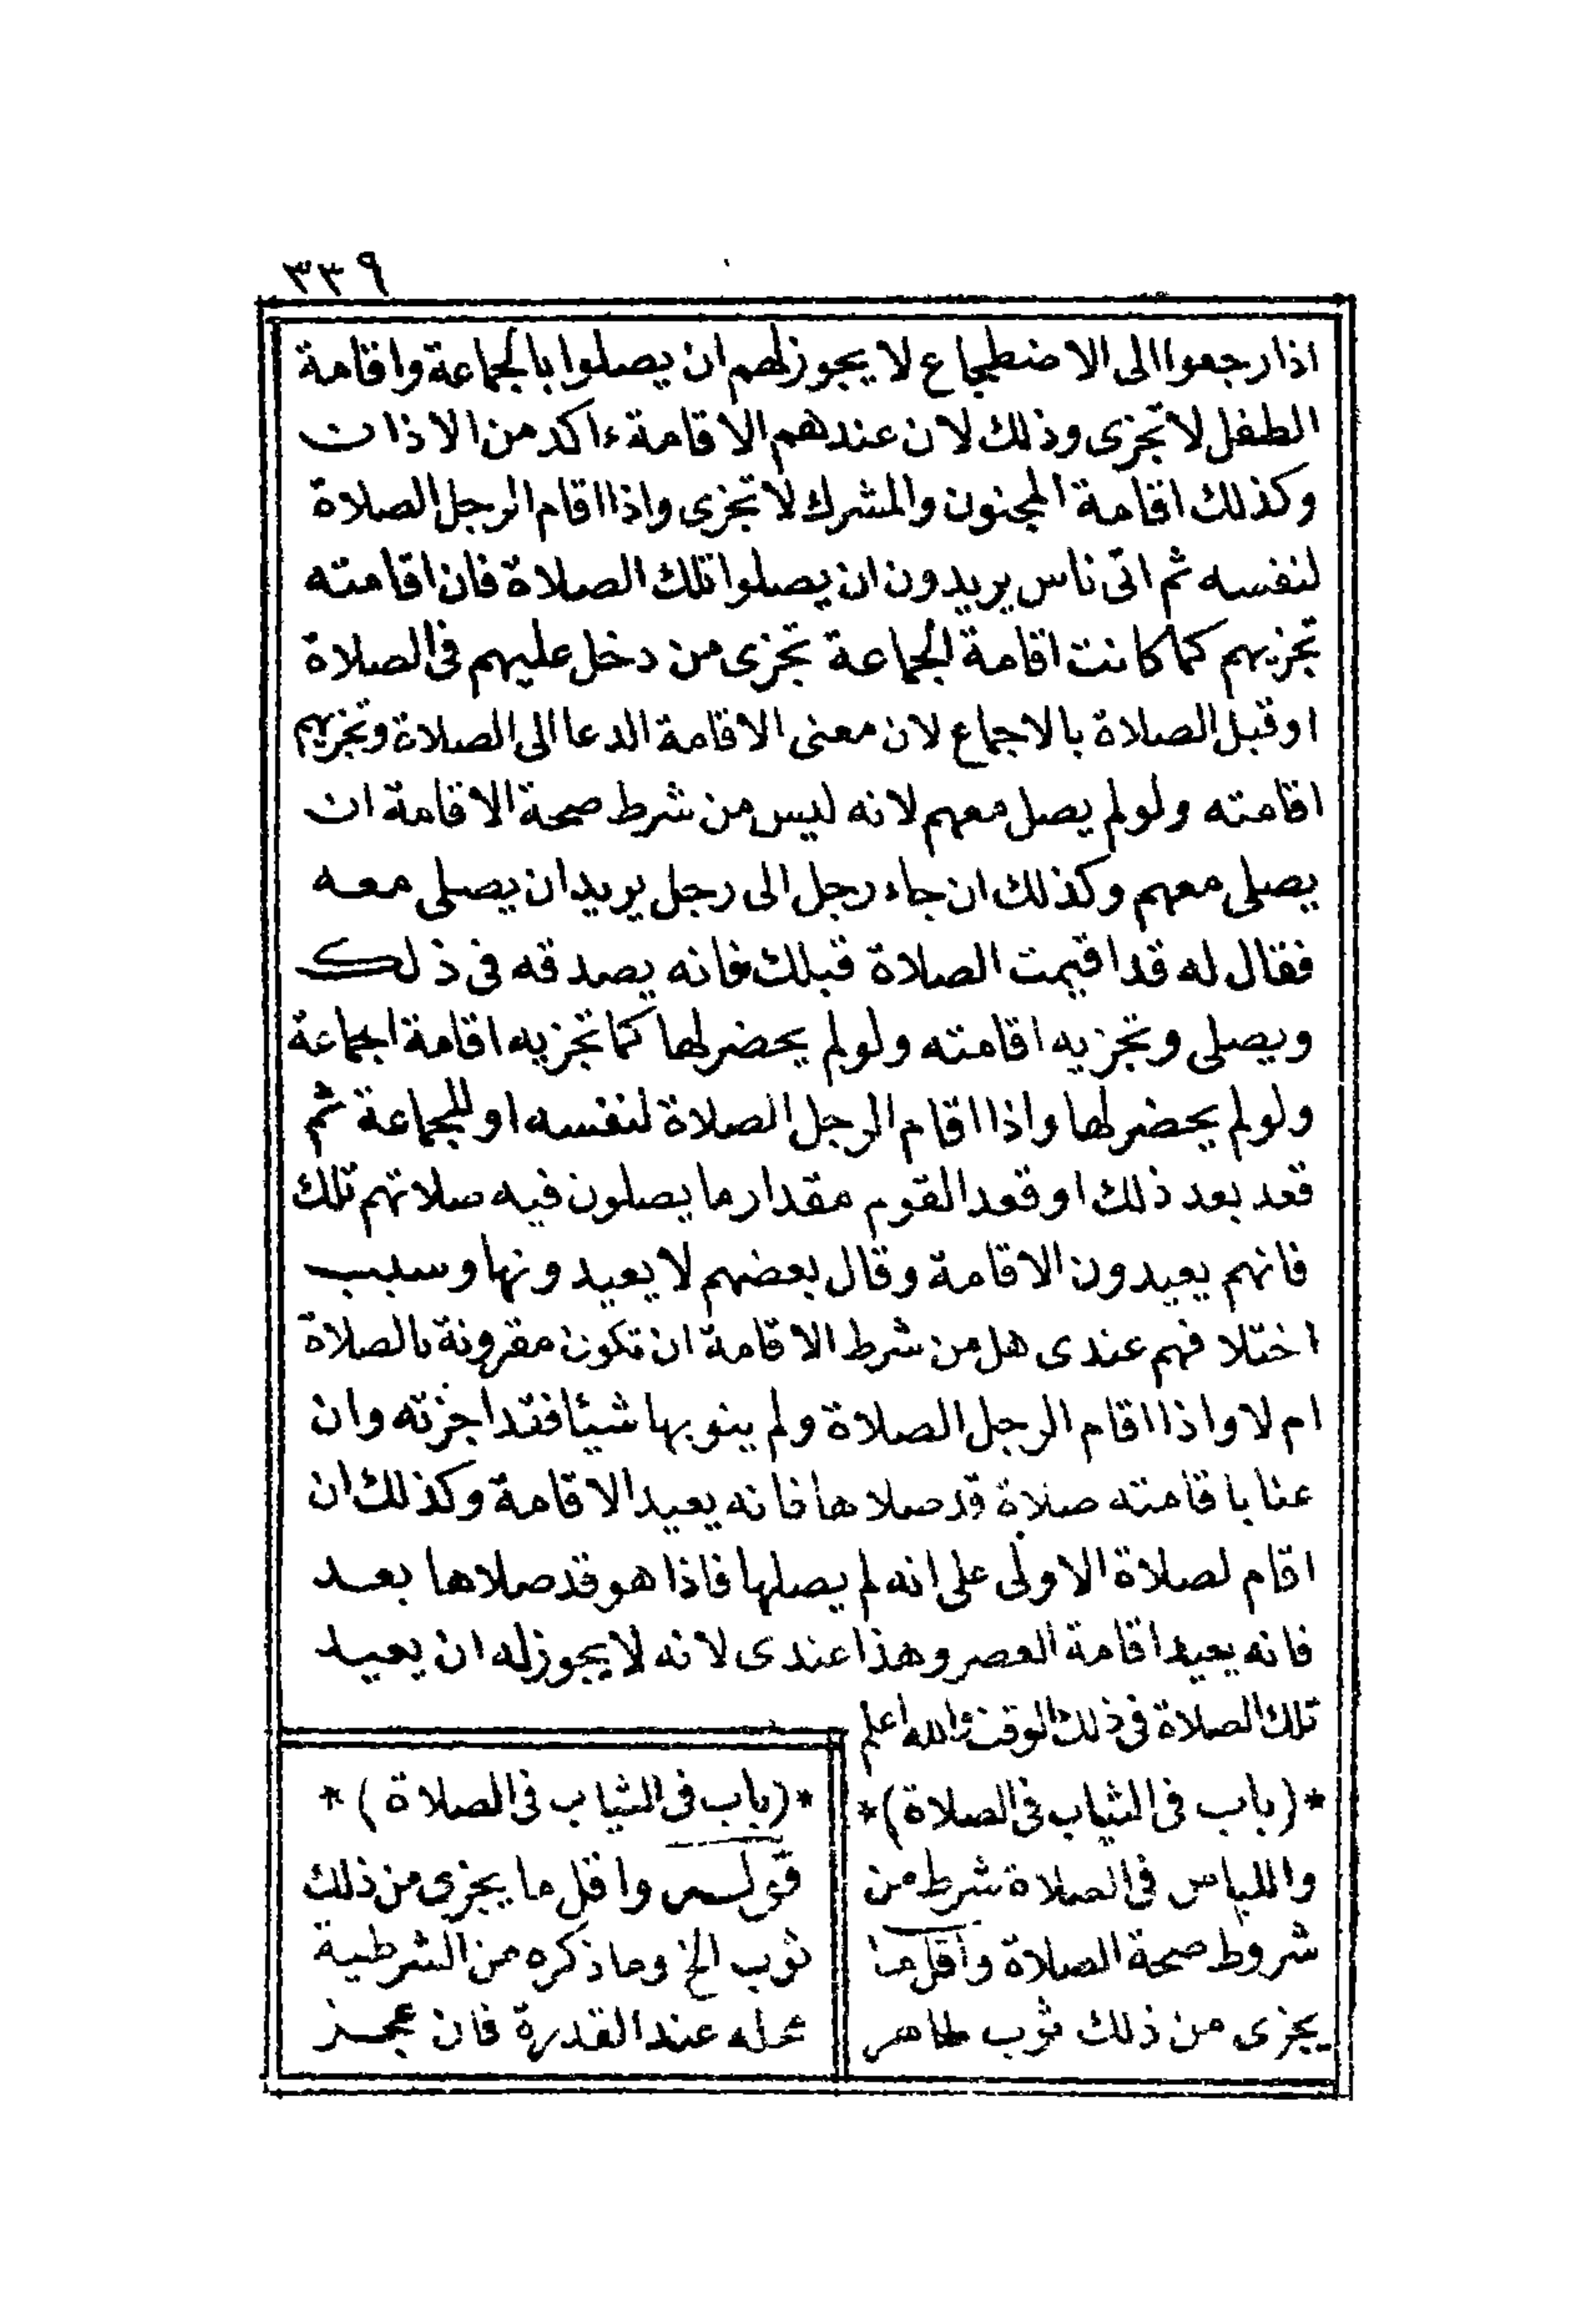 ٣٣٩
اذا رجعوا الى الاضطجاع لا يجوز لهم ان يصلوا بالجماعة واقامة
الطفل لا تجزى وذلك لان عندهم الاقامة ءاكد من الاذان
وكذلك اقامة المجنون والمشرك لا تجزى واذا اقام الرجل الصلاة
لنفسه ثم اتى ناس يريدون ان يصلوا تلك الصلاة فان اقامته
تجزيهم كما كانت اقامة الجماعة تجزى من دخل عليهم فى الصلاة
او قبل الصلاة بالاجماع لان معنى الاقامة الدعا الى الصلاة وتجزيهم
اقامته ولو لم يصل معهم لانه ليس من شرط صحة الاقامة ان
يصلى معهم وكذلك ان جاء رجل الى رجل يريد ان يصلى معه
فقال له قد اقيمت الصلاة قبلك فانه يصدقه فى ذلك
ويصلى وتجزيه اقامته ولو لم يحضر لها كما تجزيه اقامة الجماعة
ولو لم يحضر لها واذا اقام الرجل الصلاة لنفسه او للجماعة ثم
قعد بعد ذلك او قعد القوم مقدار ما يصلون فيه صلاتهم تلك
فانهم يعيدون الاقامة وقال بعضهم لا يعيدونها وسبب
اختلافهم عندى هل من شرط الاقامة ان تكون مقرونة بالصلاة
ام لا واذا اقام الرجل الصلاة ولم ينو بها شيئا فقد اجزته وان
عنا باقامته صلاة قد صلاها فانه يعيد الاقامة وكذلك ان
اقام لصلاة الاولى على انه لم يصلها فاذا هو قد صلاها بعد
فانه يعيد اقامة العصر وهذا عندى لانه لا يجوز له ان يعيد
تلك الصلاة فى ذلك الوقت والله اعلم
*(باب فى الثياب فى الصلاة)*
واللباس فى الصلاة شرط من
شروط صحة الصلاة واقل ما
يجزى من ذلك ثوب طاهر
*(باب فى الثياب فى الصلاة)*
قوله واقل ما يجزى من ذلك
ثوب الخ وما ذكره من الشرطية
محله عند القدرة فان عجز